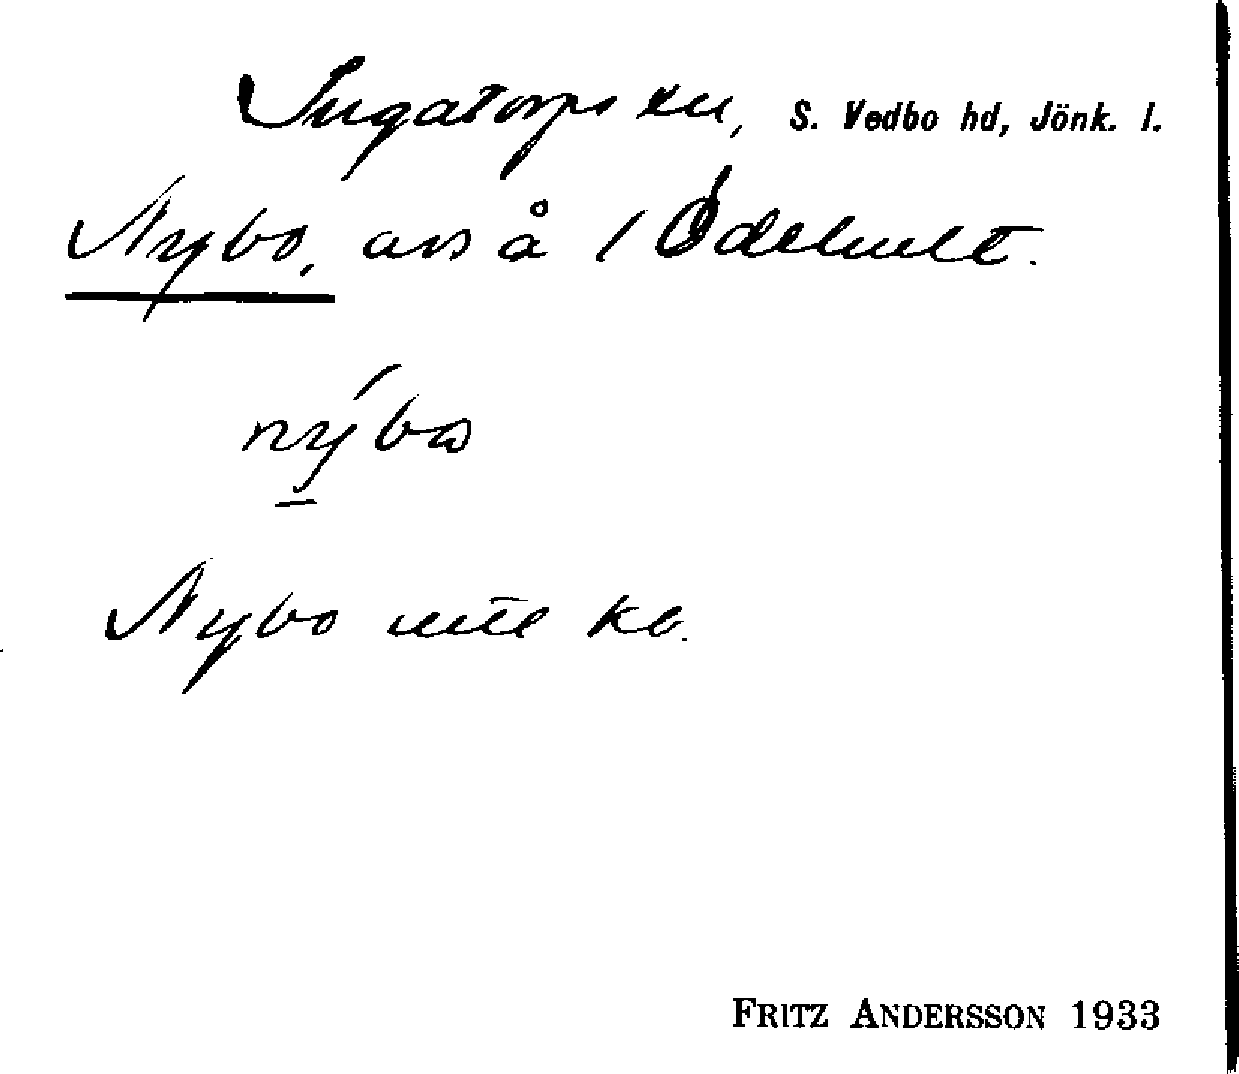 Ingatorps sn, S. Vedbo hd, Jönk. l.
Nybo, avs å 1 Ödehult.
nýbo
Nybo utte kb.
FRITZ ANDERSSON 1933